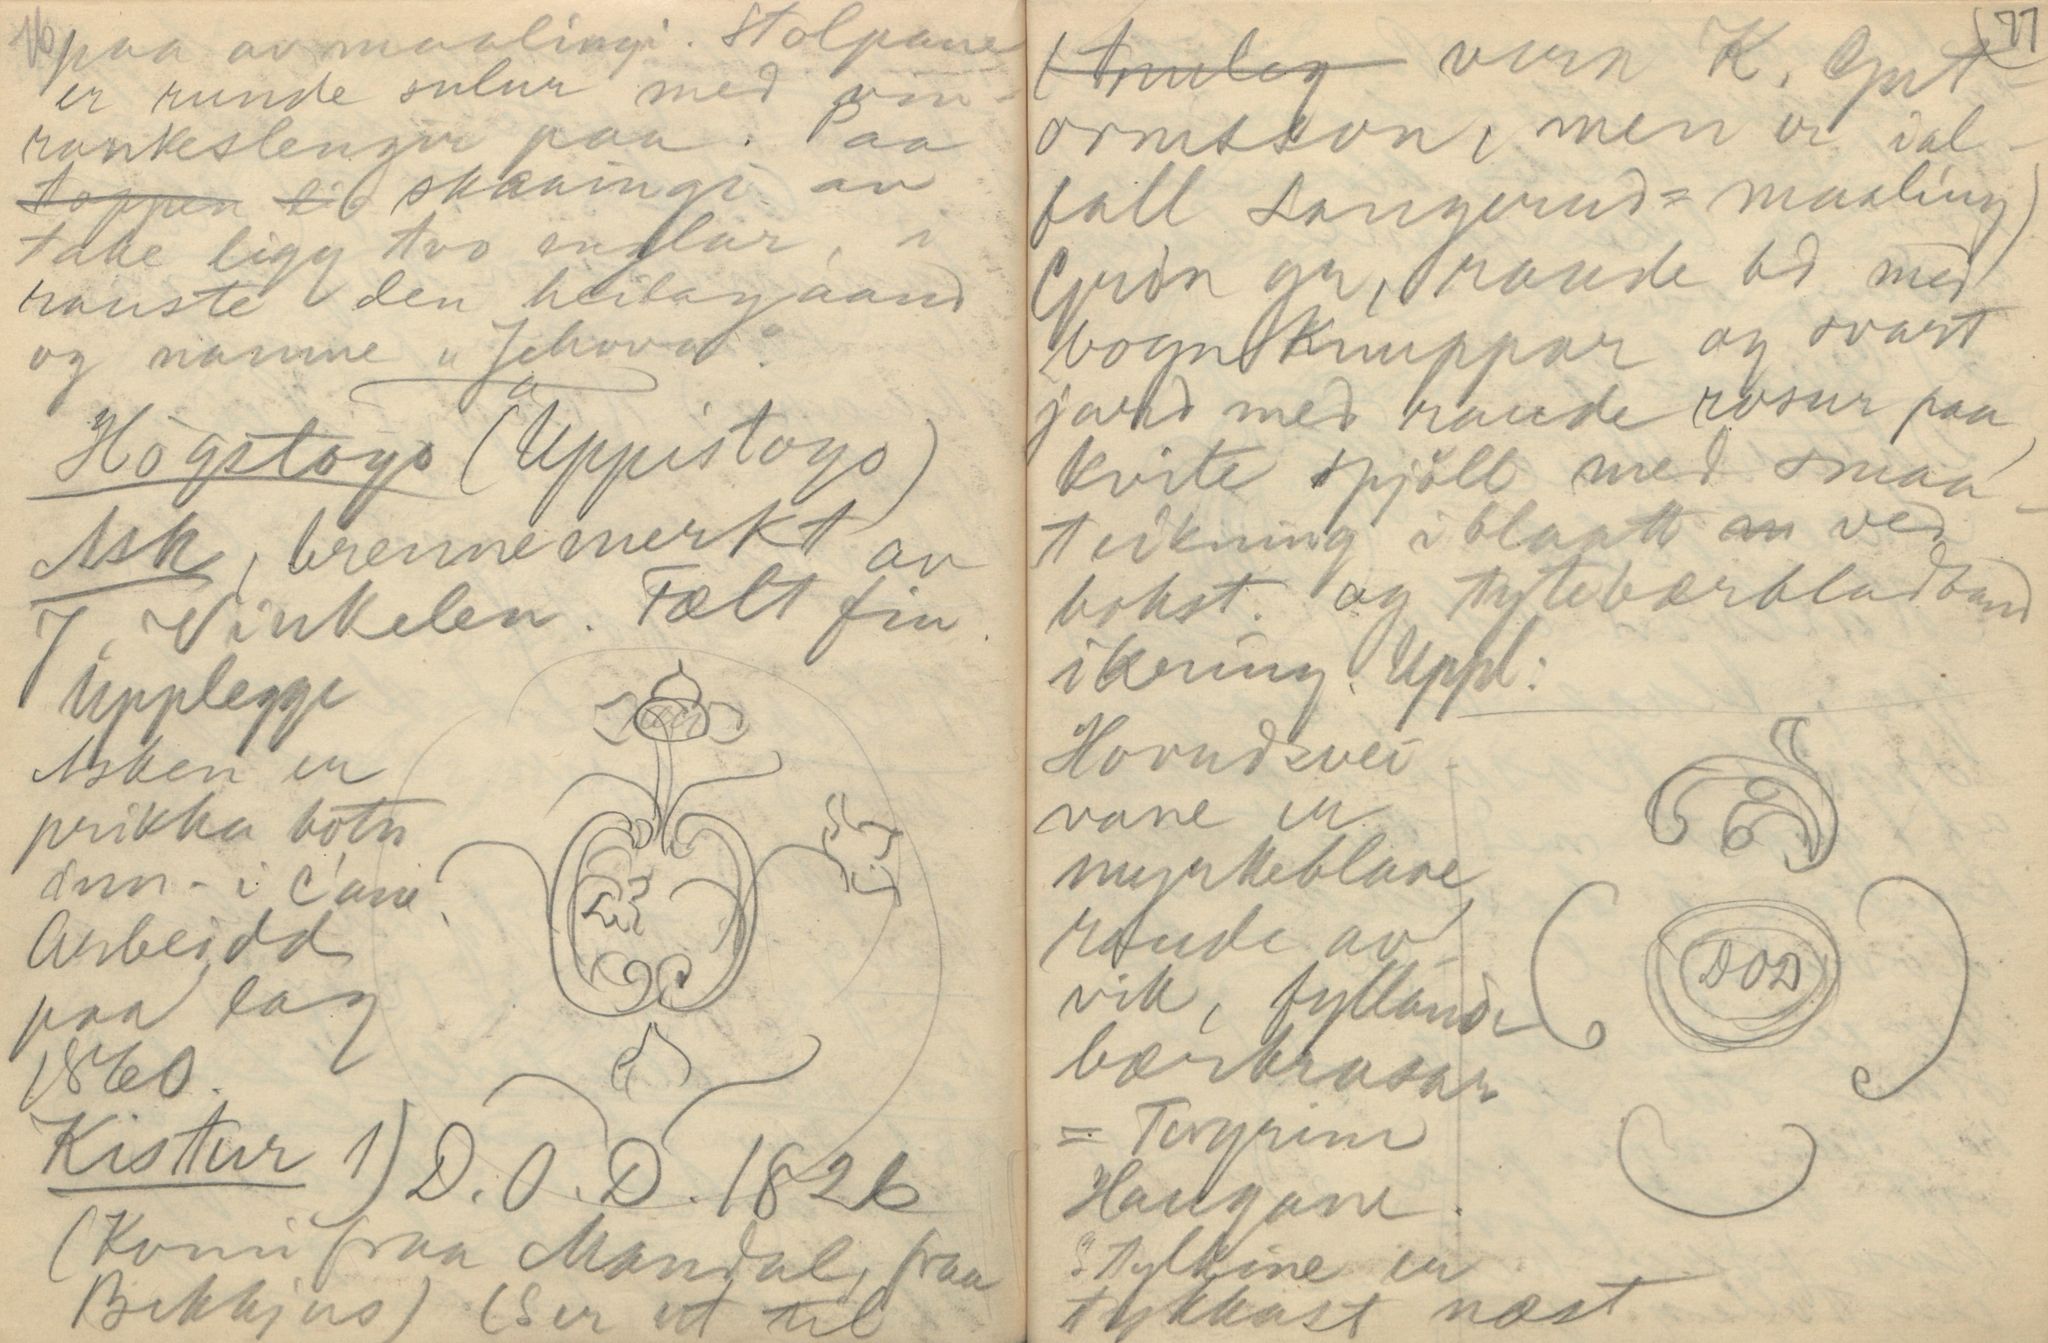 16
paa avmaalingi. Stolpane
er runde sulur med vin-
rankeslengir paa. Paa
toppen til skraaingi av
take ligg tvo englar, i
rauste den heilag aand
og namne "Jehova".
Høgstøgo (Uppistogo)
Ask, brennemerkt av
J. Vinkelen. Fælt fin.
Upplegge
Asken er
prikka botn
inn-i c'ane.
Arbeidd
paa lag
1860.
Kistur 1) D. O. D. 1826
(Komi fraa Mandal, fraa
Bekkjus) (Ser ut til
17
(truleg vera K. Gut-
ormsson, men er ial-
fall Sangerud=maaling)
Grøn gr, raude bd med
bogn knuppar og svart
jard med raude rosur paa,
kvite spjøll med smaa-
teikning i blaatt ved
bokst. og tytebærbladband
ikering. Uppl:
Hovudsvei-
vane er
myrkeblaae
raude av-
vik, fylland-
bærbrusar
= Torgrim
Haugane.
Stylkine er
tykkast næst
DOD